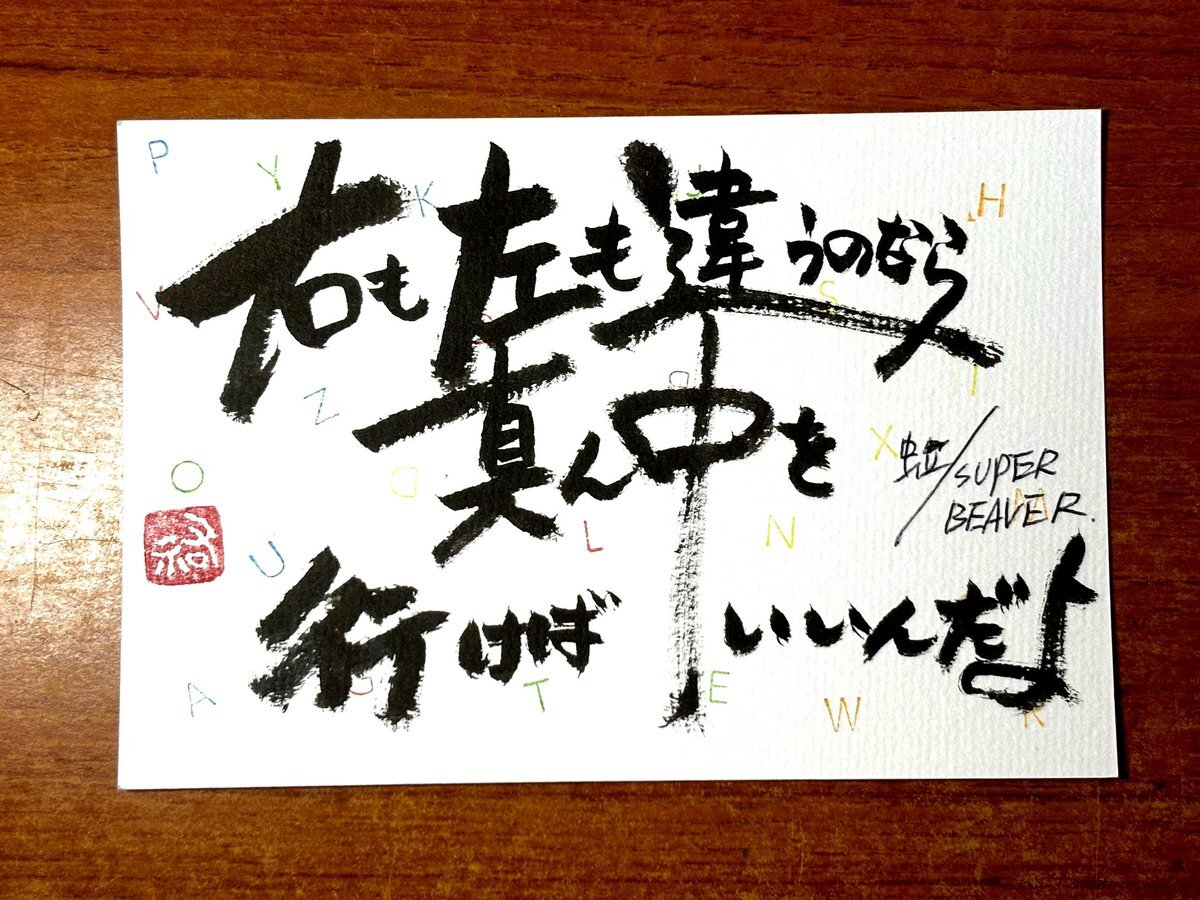 P
Y
K
H
右も左も違うのなら
S
Z
真ん中を
X
虹/SUPER
BEAVER.
O
D
U
L
N
行けばいいんだよ
A
T
E
W
R